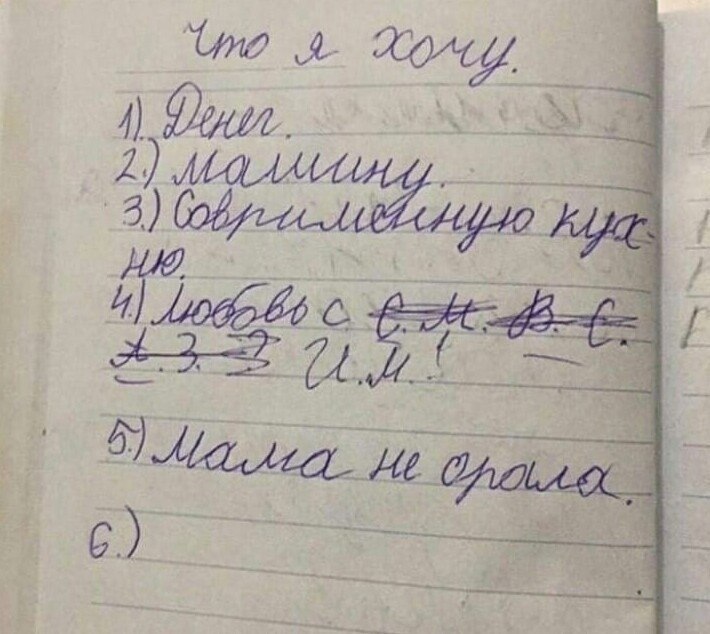 Что я хочу.
1). Денег.
2.) Машину.
3.) Совриминную кух-
ню.
4.) Любовь с С. М. В. С.
А. З. И.М.!
5.) Мама не орала.
6.)